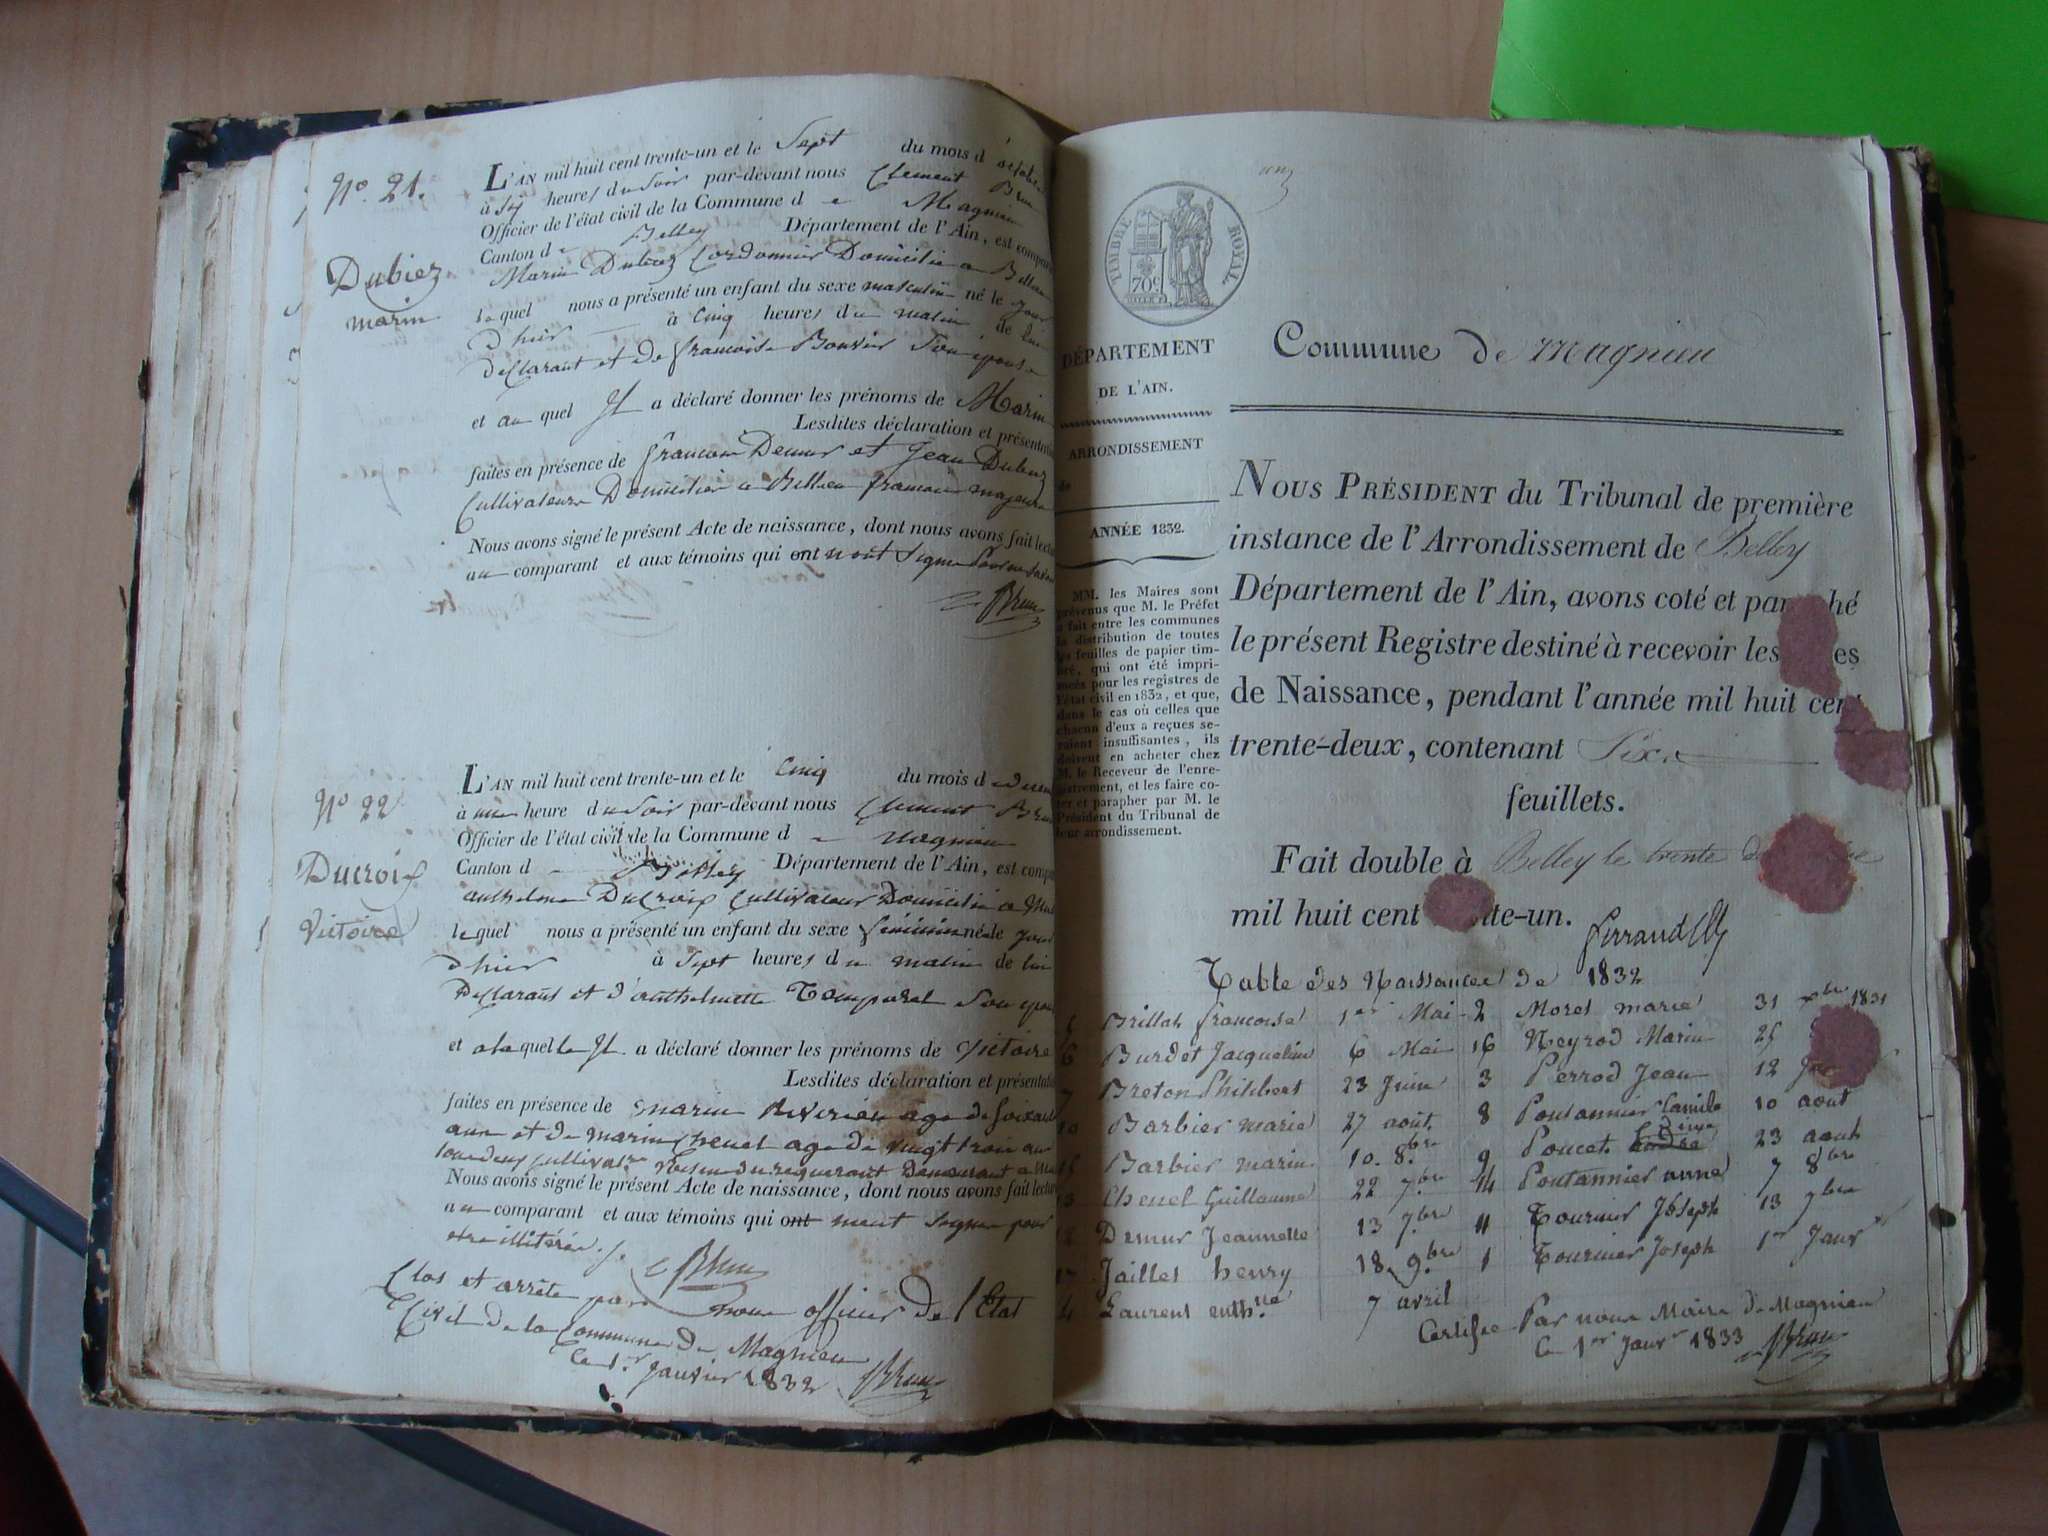 N° 21.
Dubiez
marin
L'AN mil huit cent trente-un et le Sept du mois d'octobre
à six heures du Soir par-devant nous Clement Brun
Officier de l'état civil de la Commune de Magnieu
Canton de Belley Département de l'Ain, est comparu
Marin Dubiez Cordonnier Domicilié a
lequel nous a présenté un enfant du sexe masculin né le jour
d'hier à cinq heures du matin de lui
declarant et de francoise Bouvier Son epouse
et au quel Il a déclaré donner les prénoms de Marin
Lesdites déclaration et présentation
faites en présence de francois Demur et Jean Dubiez
Cultivateurs Domicilies a francois majeurs
Nous avons signé le présent Acte de naissance, dont nous avons fait lecture
au comparant et aux témoins qui ont n'ont Signe
Brun
N° 22
Ducroix
Victoire
L'AN mil huit cent trente-un et le cinq du mois de
à une heure du Soir par-devant nous Clement Brun
Officier de l'état civil de la Commune de Magnieu
Canton de Belley Département de l'Ain, est comparu
anthelme DuCroix Cultivateur Domicilié a
lequel nous a présenté un enfant du sexe féminin née le jour
d'hier à Sept heures du matin de lui
Declarant et d'anthelmette Temporal Son epouse
et a la quelle Il a déclaré donner les prénoms de Victoire
Lesdites déclaration et présentation
faites en présence de marin age de Soixante
ans et de marin Chenel age de vingt trois ans
tous deux cultivat.rs du requerant Demeurant a
Nous avons signé le présent Acte de naissance, dont nous avons fait lecture
au comparant et aux témoins qui ont n'ont Signe pour
etre illiterés
Brun
Clos et arrêté par nous officier de l'Etat
Civil de la Commune de Magnieu
Ce 1.er Janvier 1832 Brun
TIMBRE ROYAL
70c
DÉPARTEMENT
DE L'AIN.
ARRONDISSEMENT
de
ANNÉE 1832.
MM. les Maires sont
prévenus que M. le Préfet
a fait entre les communes
la distribution de toutes
les feuilles de papier tim-
bré, qui ont été impri-
mées pour les registres de
l'état civil en 1832, et que,
dans le cas où celles que
chacun d'eux a reçues se-
raient insuffisantes, ils
doivent en acheter chez
M. le Receveur de l'enre-
gistrement, et les faire co-
ter et parapher par M. le
Président du Tribunal de
leur arrondissement.
Commune de Magnieu
NOUS PRÉSIDENT du Tribunal de première
instance de l'Arrondissement de Belley
Département de l'Ain, avons coté et paraphé
le présent Registre destiné à recevoir les Actes
de Naissance, pendant l'année mil huit cent
trente-deux, contenant Six
feuillets.
Fait double à Belley le trente
mil huit cent trente-un.
Table des Naissances de 1832
Brillat francoise 1er Mai 2 Morel marie 31 xbre 1831
6 Burdet Jacqueline 6 Mai 16 Neyrod Marin 25
7 Breton Philibert 23 Juin 3 Perrod Jean 12
10 Barbier marie 27 août 8 Poutannier Camile 10 aout
15 Barbier marin 10. 8.bre 9 Poncet 23 aout
13 Chenel Guillaume 22 7.bre 14 Poutannier anne 7 8bre
12 Demur Jeannette 13 7.bre 11 Tournier Joseph 13 7bre
17 Jaillet henry 18. 9.bre 1 Tournier Joseph 1er Janv.r
4 Laurent anth.tte 7 avril
Certifié Par nous Maire de Magnieu
Ce 1er Janv.r 1833 Brun